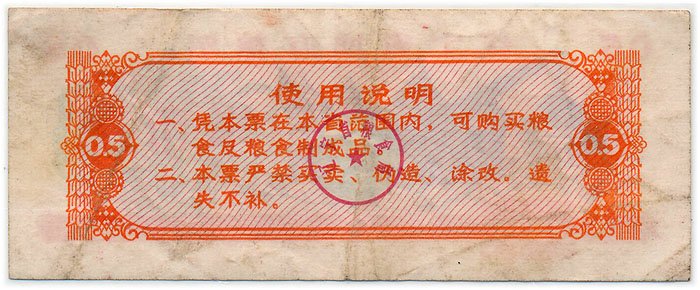 使用说明
一、凭本票在本省范围内，可购买粮
0.5
食及粮食制成品。
0.5
二、本票严禁买卖、伪造、涂改。遗
失不补。
省粮食